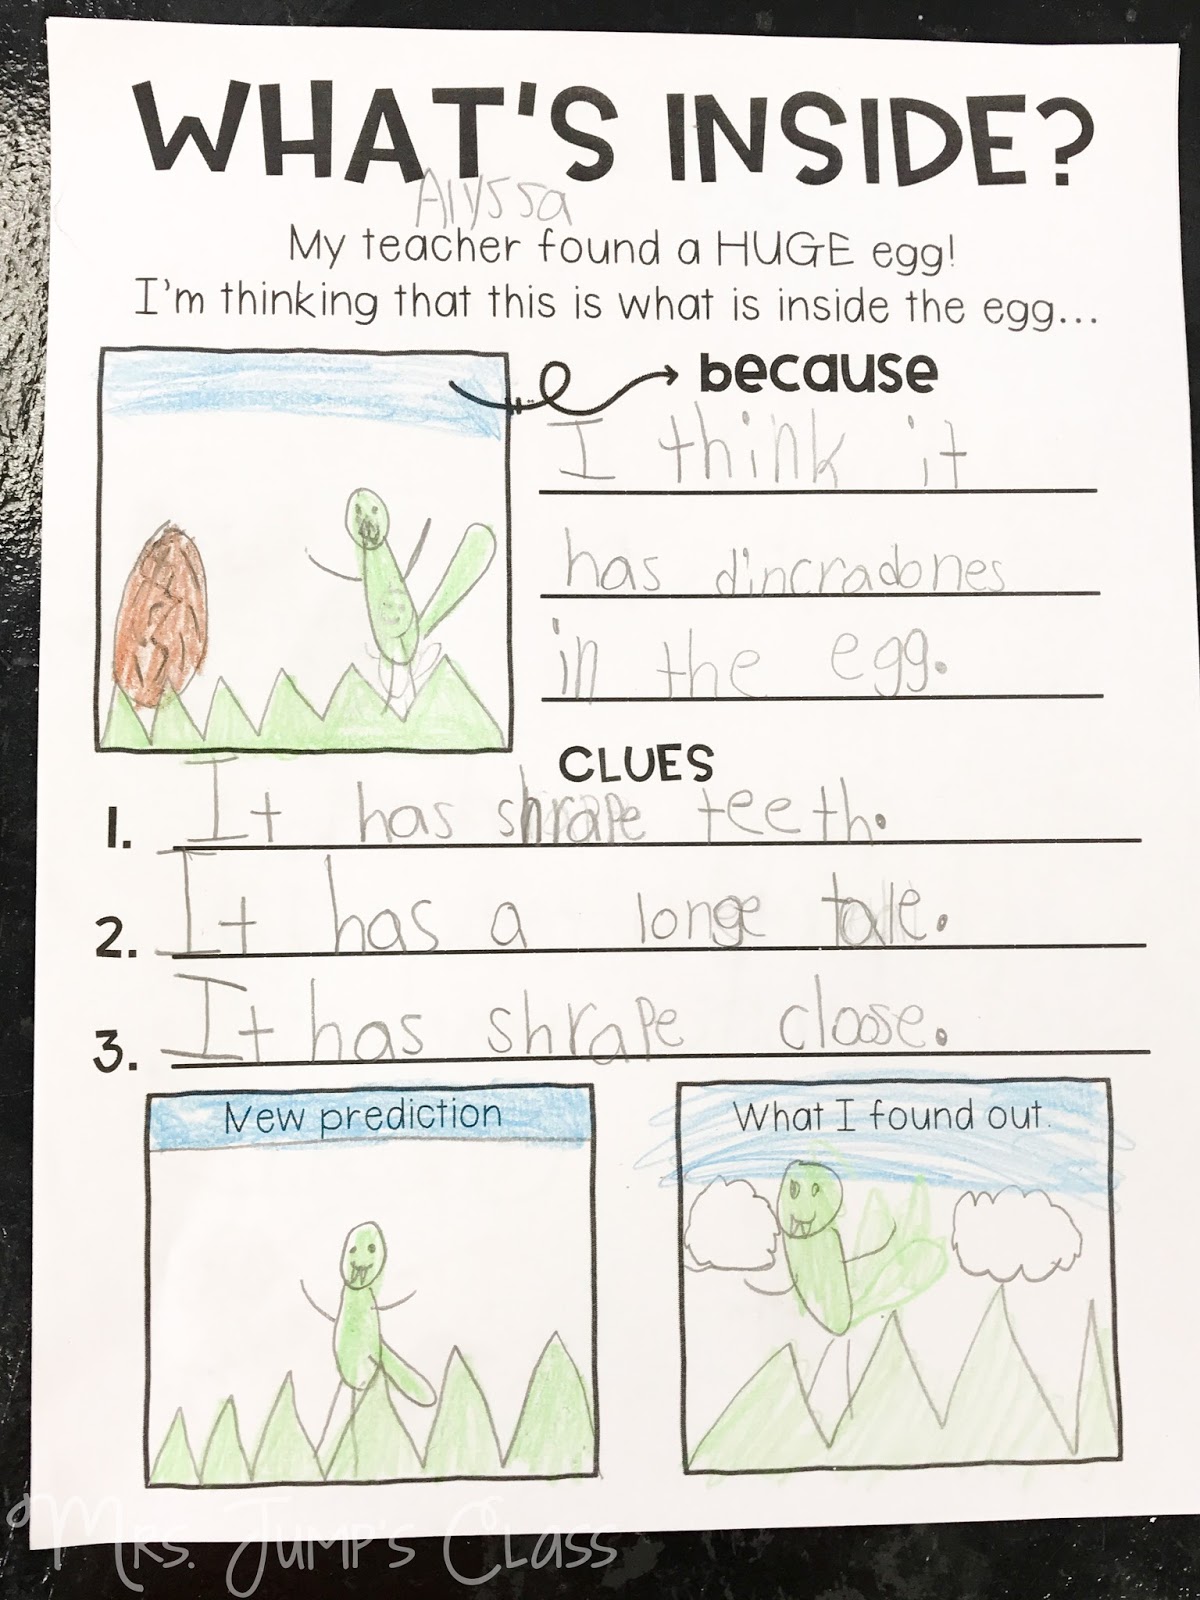 WHAT'S INSIDE?
Alyssa
My teacher found a HUGE egg!
I'm thinking that this is what is inside the egg...
because
I think it
has dincradones
in the egg.
CLUES
1. It has shrape teeth.
2. It has a longe tale.
3. It has shrape cloose.
New prediction
What I found out.
Mrs. Jump's Class